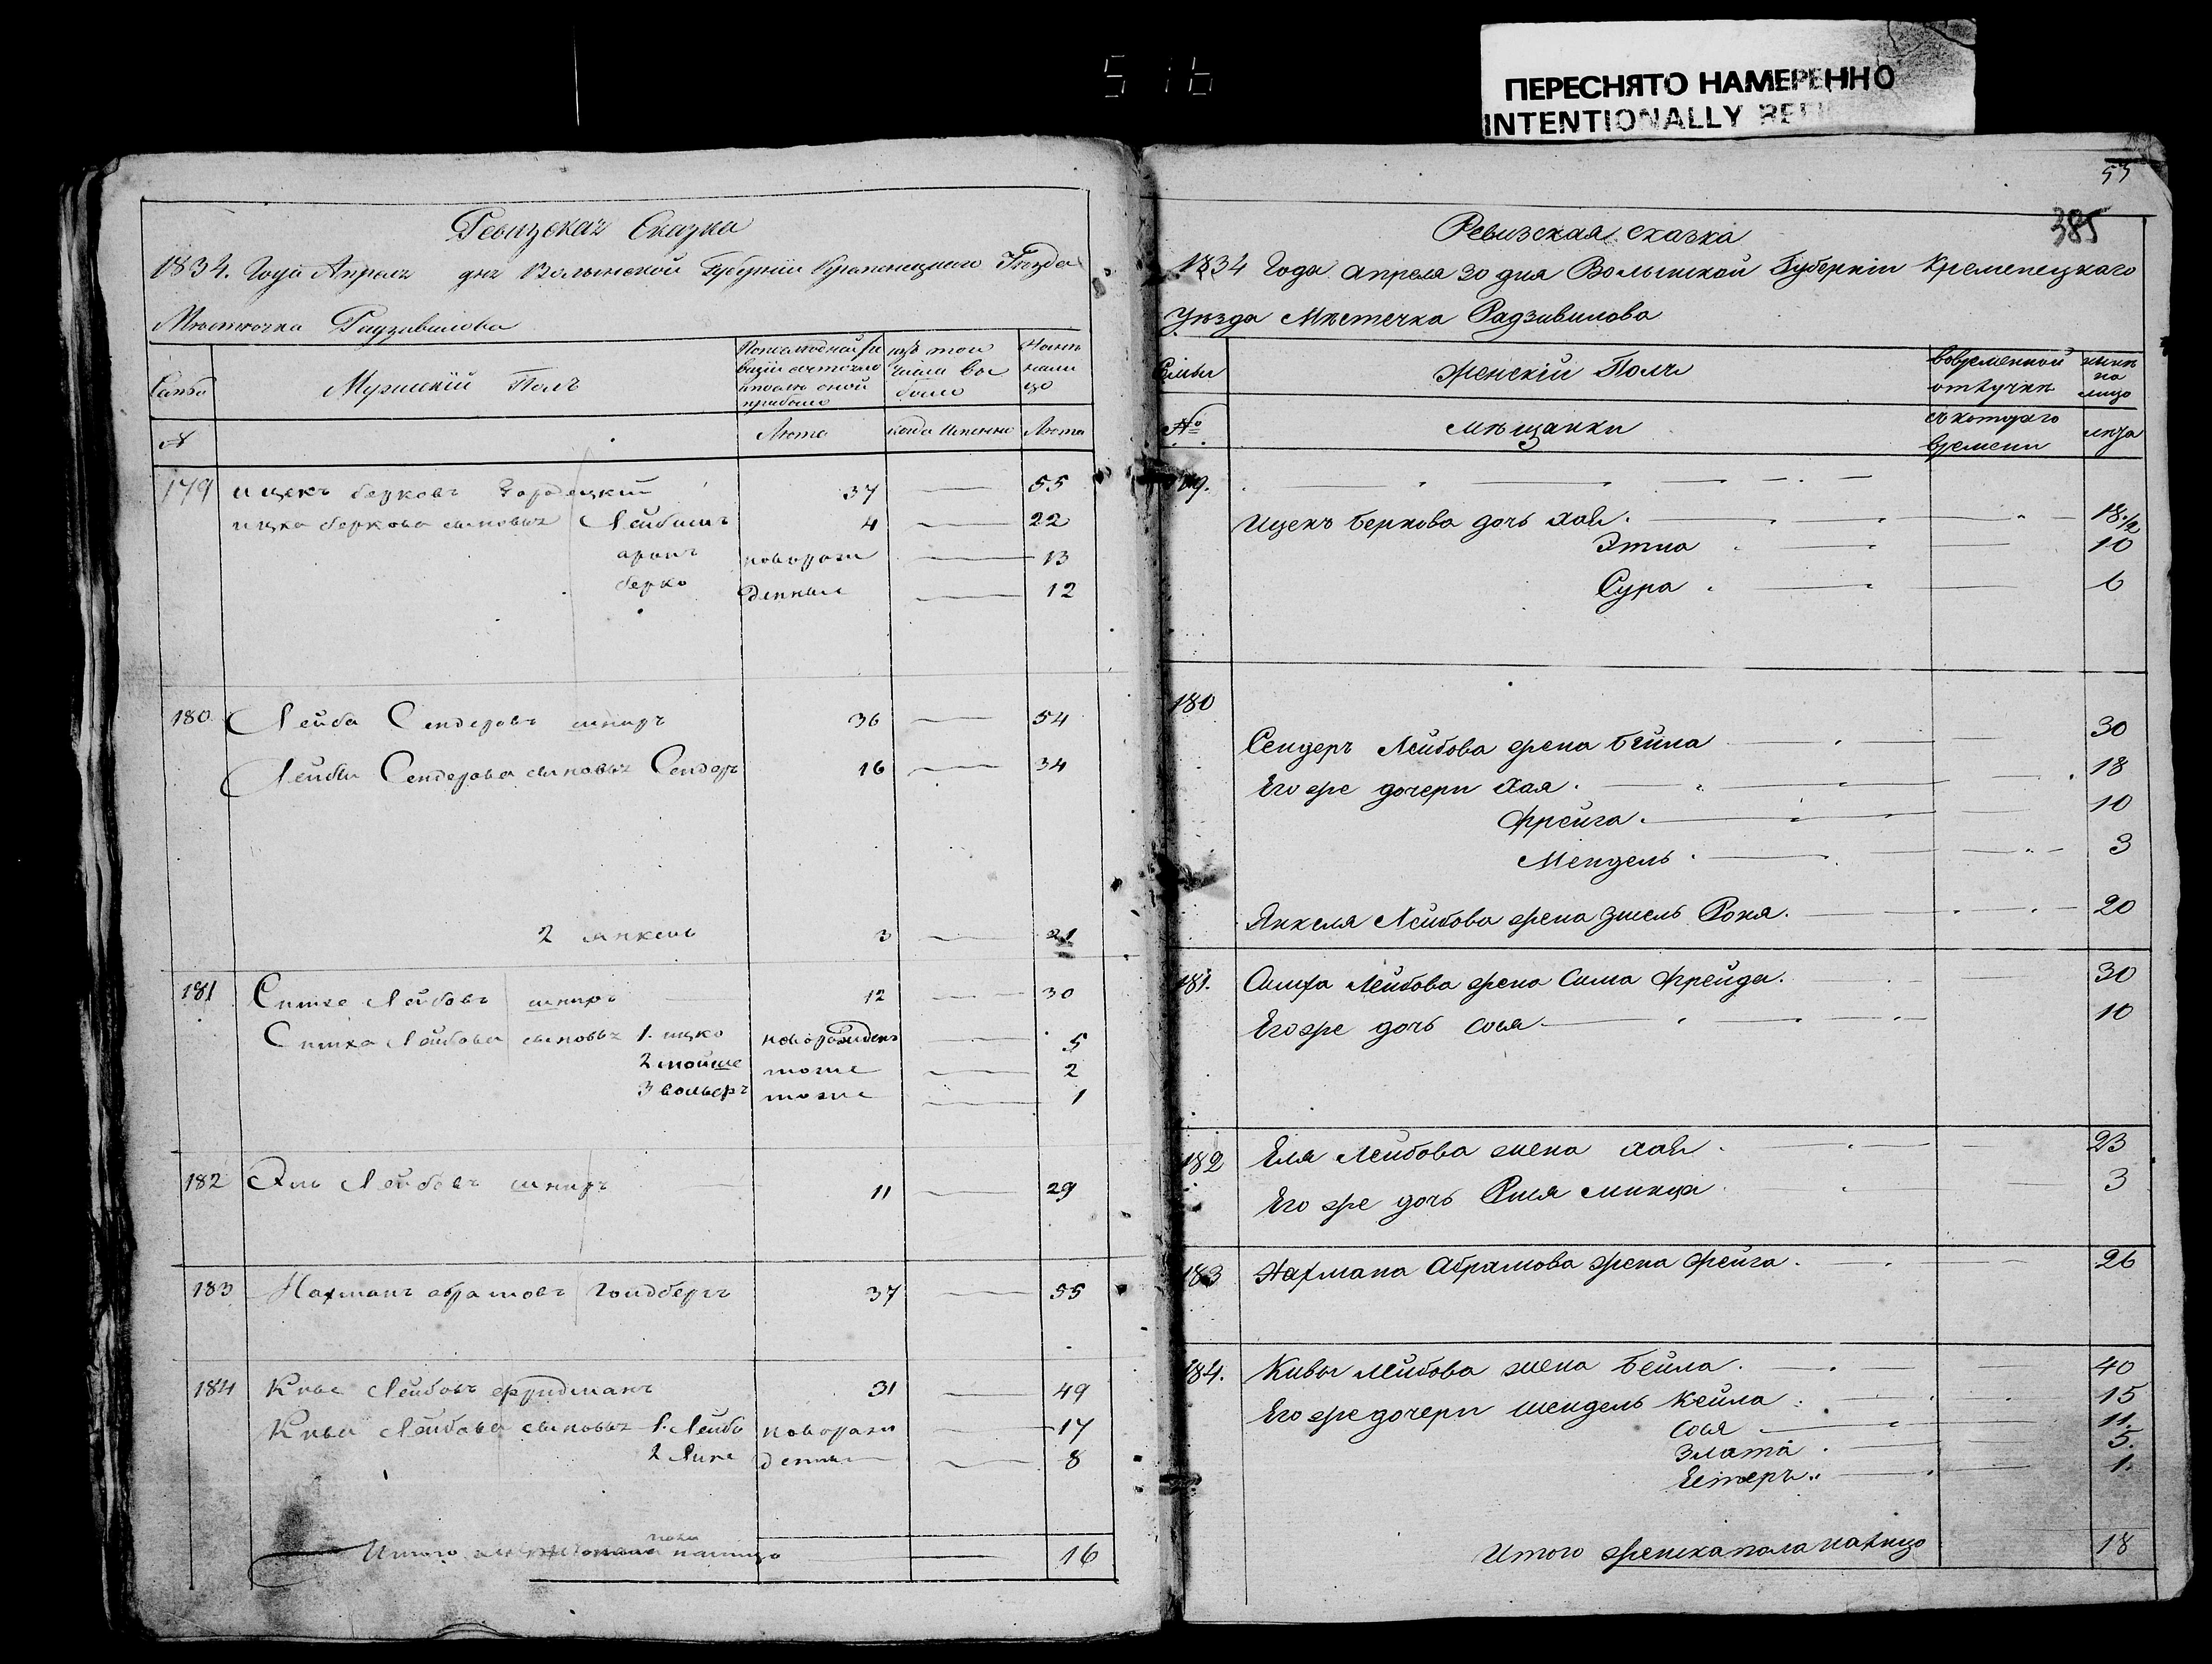 516
ПЕРЕСНЯТО НАМЕРЕННО
INTENTIONALLY
Ревизская Сказка
1834. Года Апреля дня Волынской Губернїи Кременецкаго Уезда
Мѣстечка Радзивилова
Мужескїй Полъ
№ Лѣта когда именно Лѣта
179 ицекъ берковъ Городецкий 37 55
ицка беркова сыновья Лейбишъ 4 22
аронъ новорож 13
берко денные 12
180 Лейба Сендеровъ шниръ 36 54
Лейбы Сендерова сыновья Сендеръ 16 34
2 янкель 3 21
181 Симха Лейбовъ шниръ 12 30
Симха Лейбова сыновья 1. ицко новорожденъ 5
2 мойше тоже 2
3 вольфъ тоже 1
182 Эль Лейбовъ шниръ 11 29
183 Нахманъ абрамовъ голдбергъ 37 55
184 Кива Лейбовъ фридманъ 31 49
Кива Лейбова сыновья 1. Лейба новорож 17
2 денные 8
Итого налицо 16
55
385
Ревизская сказка
1834 Года апреля 30 дня Волынской Губернїи Кременецкаго
Уѣзда Мѣстечка Радзивилова
Семьи Женскїй Полъ вовременной отлучкѣ нынѣ на лицо
№ мѣщанки съ котораго времени лѣта
179.
Ицекъ беркова дочь хая. 18 1/2
Этля 10
Сура 6
180
Сендеръ Лейбова жена бейла 30
Его же дочери хая. 18
Фрейга. 10
Мендель. 3
Янкеля Лейбова жена Роня. 20
181. Симха Лейбова жена Сима Фрейда. 30
Его же дочь сося 10
182 Еля Лейбова жена хая. 23
Его же дочь минца 3
183 Нахмана Абрамова жена фейга. 26
184. Кивы лейбова жена бейла. 40
Его же дочери шендель кейла. 15
сося 11.
Злата. 5.
Естеръ. 1.
Итого женска пола налицо 18